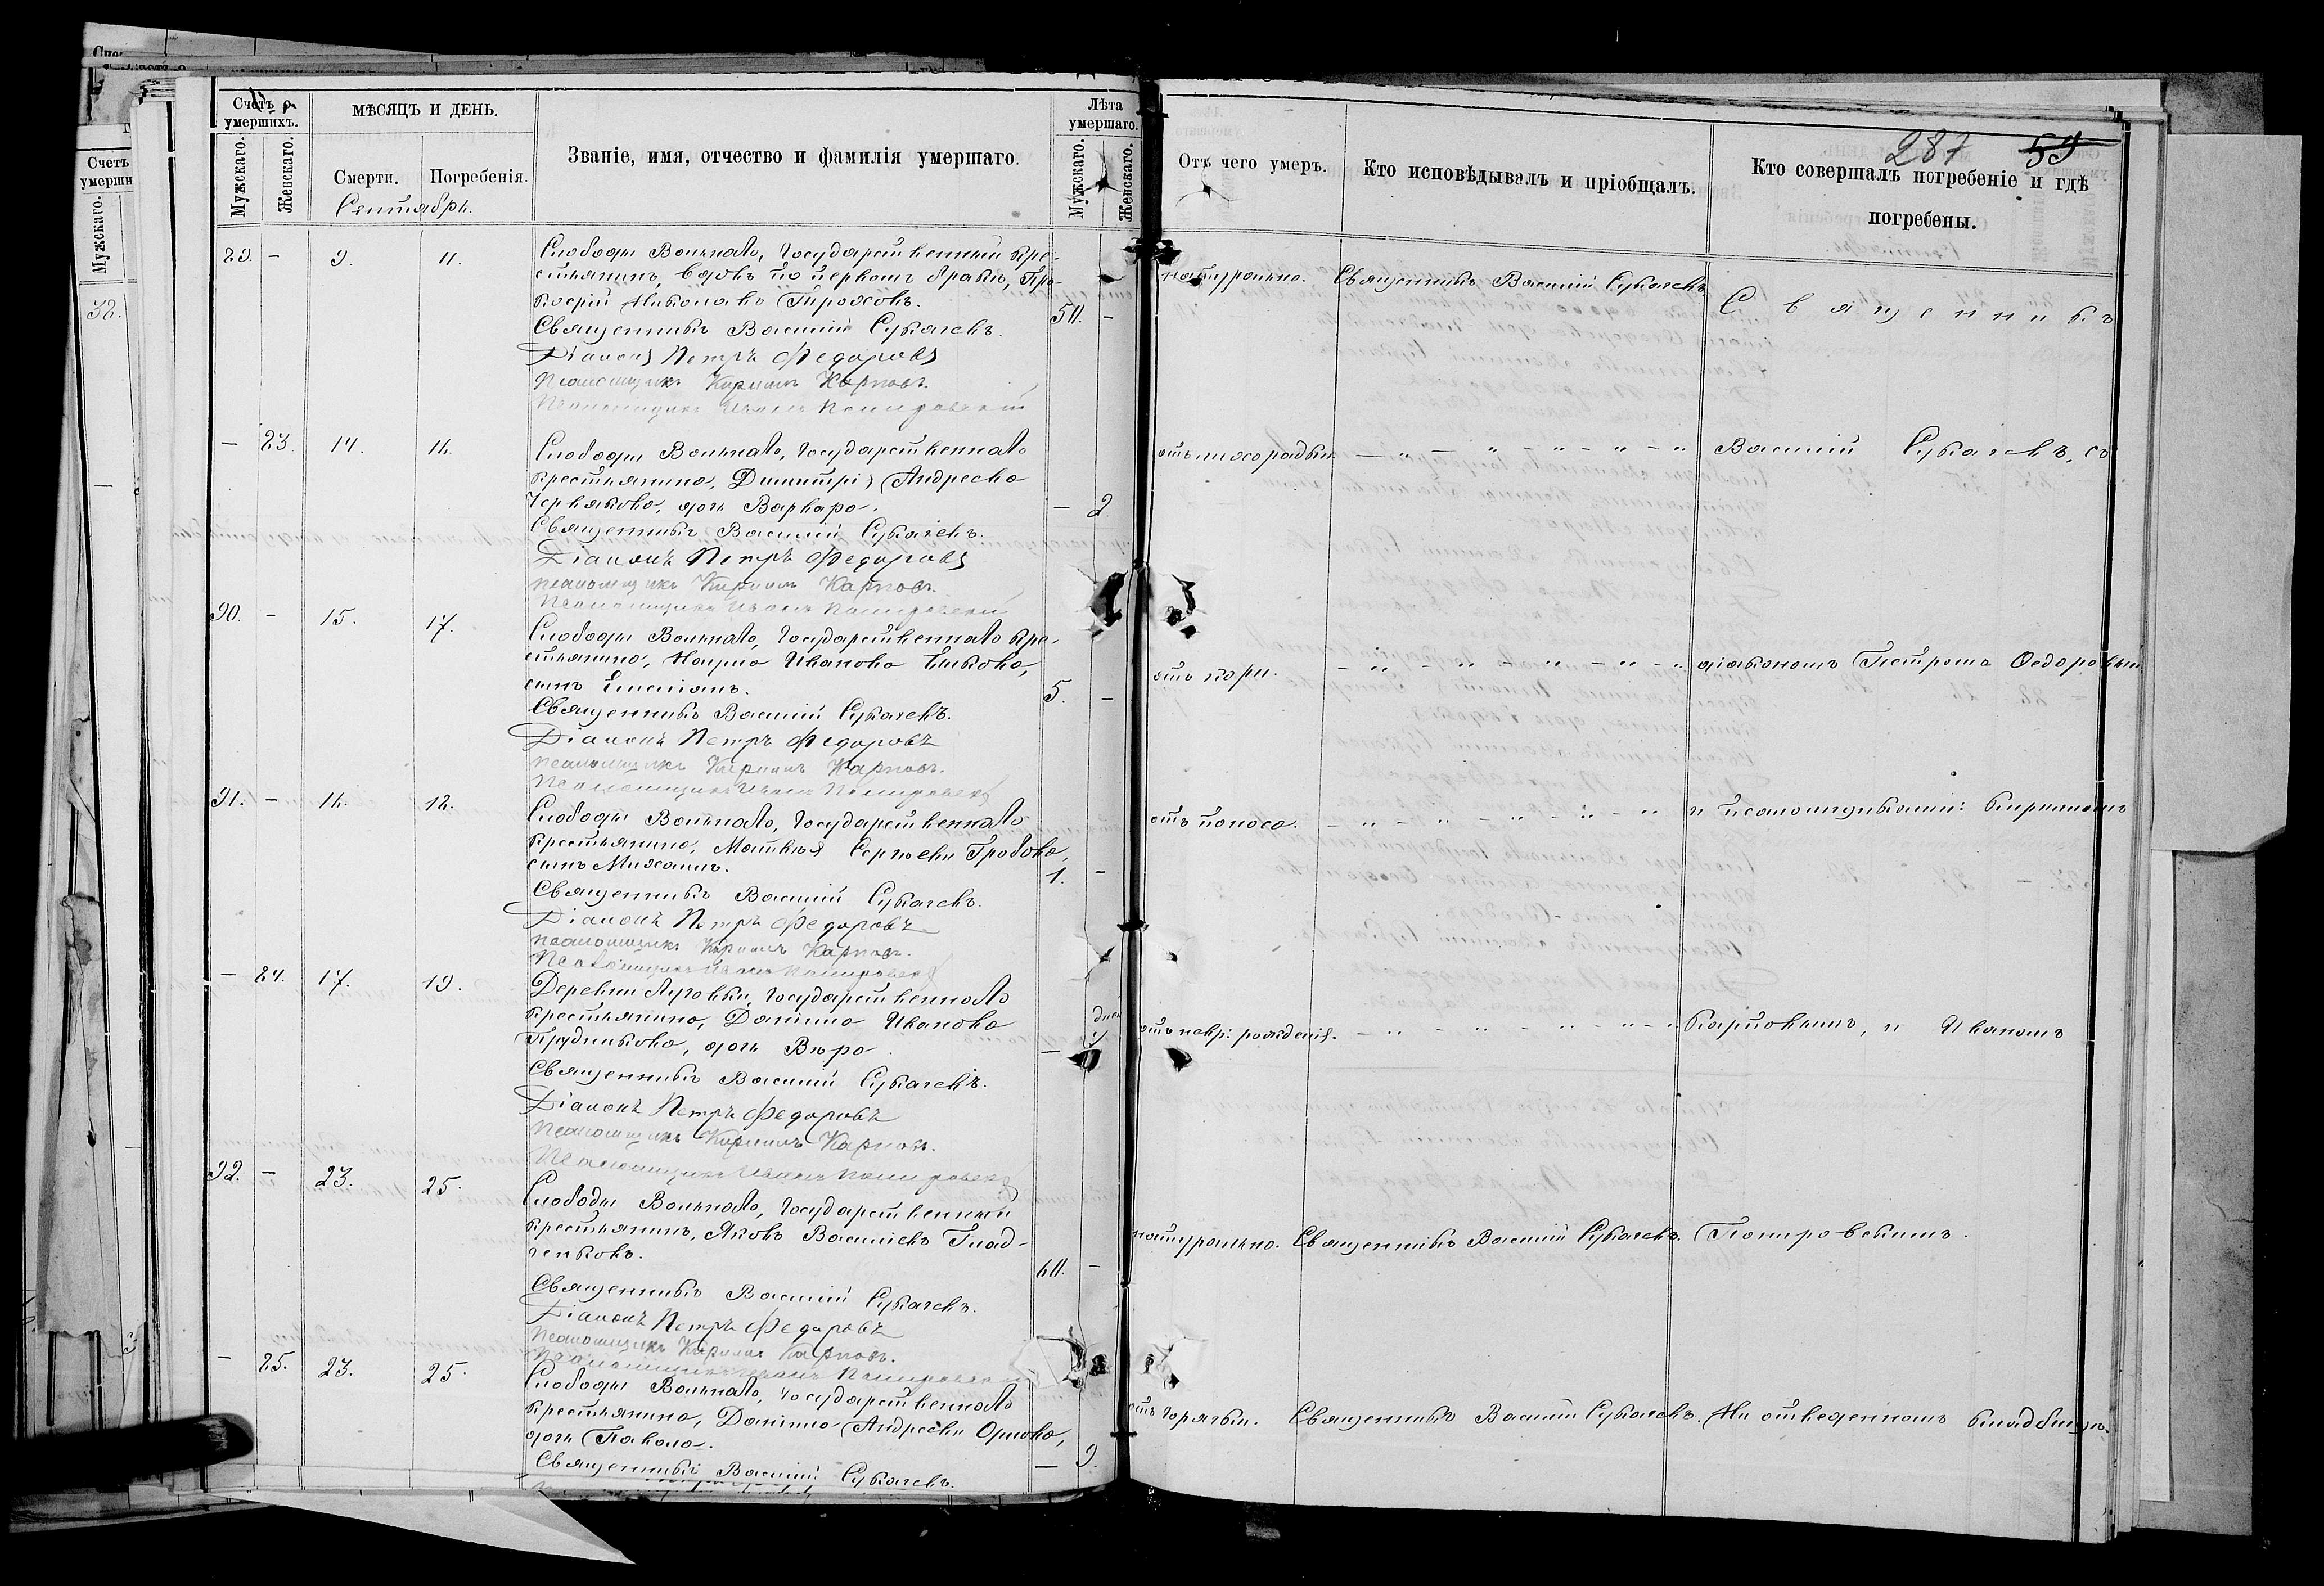 Счетъ умершихъ.
Мужскаго.
Женскаго.
МѢСЯЦЪ И ДЕНЬ.
Смерти.
Погребенія.
Сентябрь.
Званіе, имя, отчество и фамилія умершаго.
Лѣта умершаго.
Мужскаго.
Женскаго.
Отъ чего умеръ.
Кто исповѣдывалъ и пріобщалъ.
Кто совершалъ погребеніе и гдѣ
погребены.
287 59
Счетъ
умерши
Мужскаго.
38.
89. – 9. 11.
Слободы Вольнаго, Государственный кре-
стьянинъ, вдовъ по первомъ бракѣ, Про-
кофій Николаевъ
Священникъ Василій Сукачевъ.
Діаконъ Петръ Федоровъ
Псаломщикъ Кирилъ Карповъ.
Псаломщикъ Иванъ Покировскій
–
натурально.
Священникъ Василій Сукачевъ
Священникъ
– 23. 14. 16.
Слободы Вольнаго, Государственнаго
крестьянина, Димитрія Андреева
Червякова, дочь Варвара.
Священникъ Василій Сукачевъ.
Діаконъ Петръ Федоровъ
псаломщикъ Кирилъ Карповъ.
Псаломщикъ Иванъ Покировскій
– 2.
отъ лихорадки.
– „ – „ – „ – „ – „
Василій Сукачевъ, съ
90. – 15. 17.
Слободы Вольнаго, Государственнаго кре-
стьянина, Наума Иванова
сынъ Емеліянъ.
Священникъ Василій Сукачевъ.
Діаконъ Петръ Федоровъ
псаломщикъ Кирилъ Карповъ.
Псаломщикъ Иванъ Покировскій
5. –
отъ кори.
– „ – „ – „ – „ – „
діакономъ Петромъ Федоровымъ
91. – 16. 18.
Слободы Вольнаго, Государственнаго
крестьянина, Матвѣя Сергѣева
сынъ Михаилъ.
Священникъ Василій Сукачевъ.
Діаконъ Петръ Федоровъ
псаломщикъ Кирилъ Карповъ.
Псаломщикъ Иванъ Покировскій
1. –
отъ поноса.
– „ – „ – „ – „ – „
и псаломщиками: Кириломъ
– 24. 17. 19.
Деревни Луговки, Государственнаго
крестьянина, Даніила Иванова
Прудникова, дочь Вѣра.
Священникъ Василій Сукачевъ.
Діаконъ Петръ Федоровъ
Псаломщикъ Кирилъ Карповъ.
Псаломщикъ Иванъ Покировскій
дней
–
отъ невр: рожденія.
– „ – „ – „ – „ – „
Карповымъ, и Иваномъ
92. – 23. 25.
Слободы Вольнаго, Государственный
крестьянинъ, Яковъ Василіевъ Глад-
ченковъ.
Священникъ Василій Сукачевъ.
Діаконъ Петръ Федоровъ
Псаломщикъ Кирилъ Карповъ.
Псаломщикъ Иванъ Покировскій
–
натурально.
Священникъ Василій Сукачевъ.
Покировскимъ.
– 25. 23. 25.
Слободы Вольнаго, Государственнаго
крестьянина, Даніила Андреева Орлова,
дочь
Священникъ Василій Сукачевъ.
– 9.
отъ горячки.
Священникъ Василій Сукачевъ.
На отведенномъ кладбищѣ.